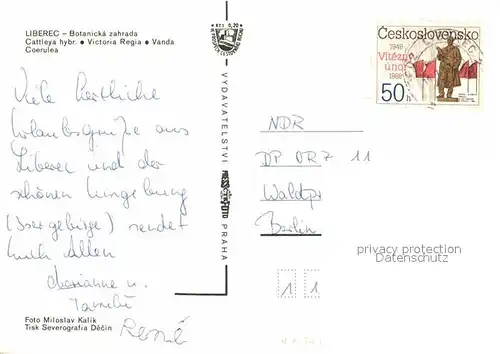 LIBEREC – Botanická zahrada
Cattleya hybr. ● Victoria Regia ● Vanda
Coerulea
Viele herzliche
Urlaubsgrüße aus
Liberec und der
schönen Umgebung
(Isergebirge) sendet
Euch Allen
Marianne u.
Familie
René
Foto Miloslav Kalík
Tisk Severografia Děčín
Kčs 0,20
VYDAVATELSTVÍ PRESSFOTO PRAHA
Československo
1948
Vítězný
únor
1988
50 h
NDR
PDORZ 11
Berlin
1 1
privacy protection
Datenschutz